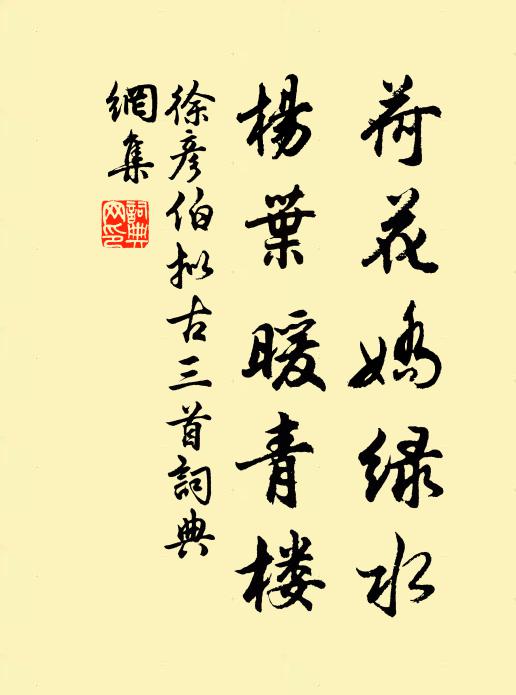 荷花嬌绿水
楊葉暖青楼
徐彦伯拟古三首詞典
網集
詞典
网印